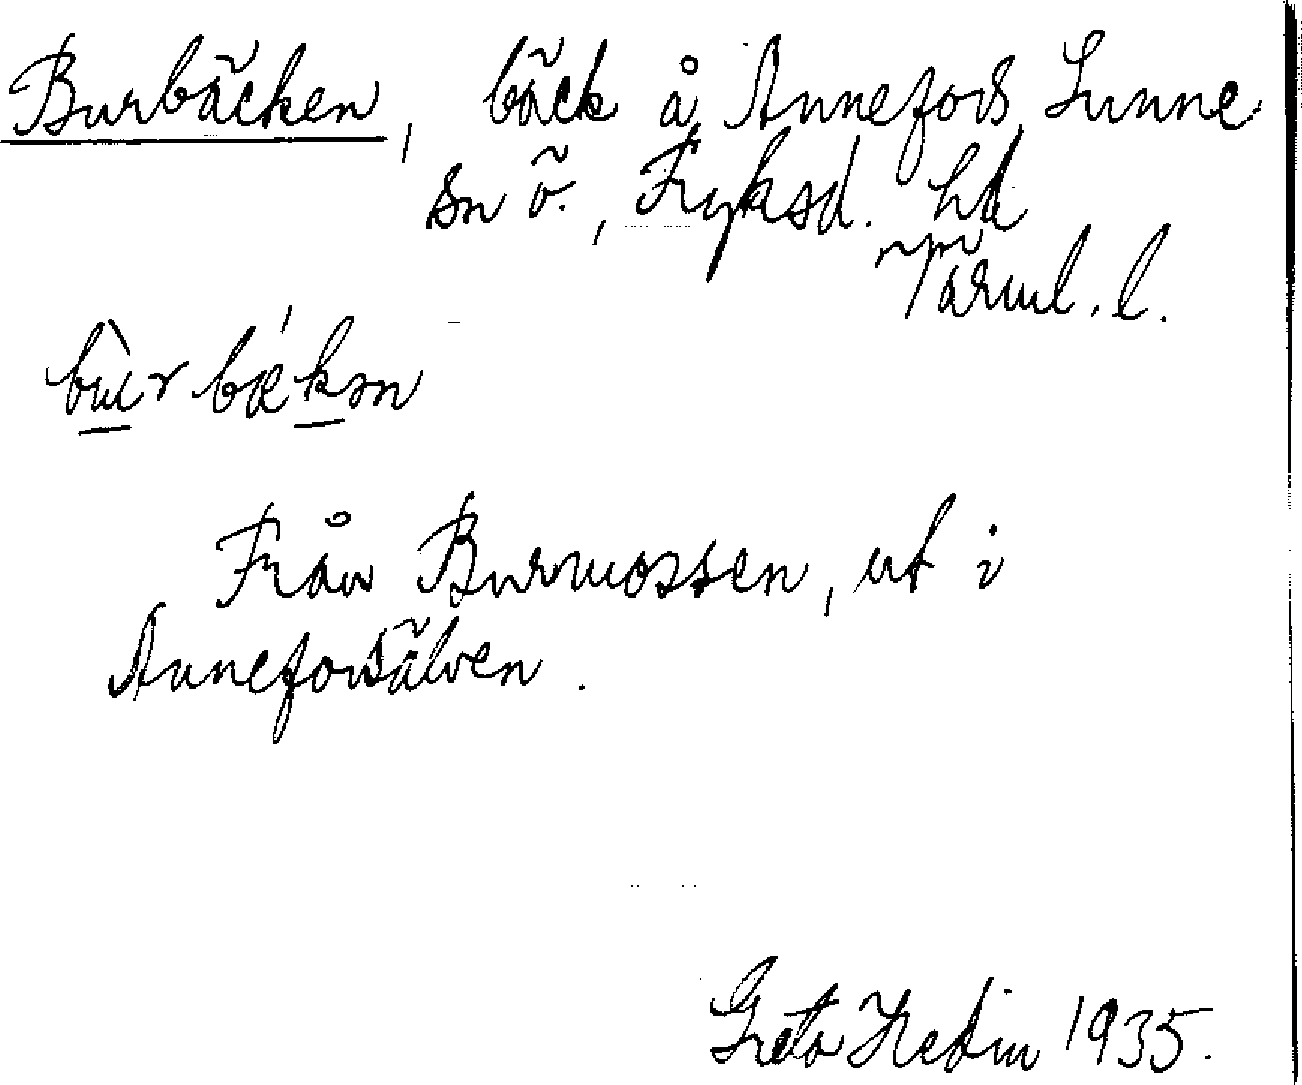 Burbäcken, bäck å Annefors, Sunne
sn ö., Fryksd. hd
Värml. l.
bu̲r bæk̲ən
Från Burmossen, ut i
Anneforsälven.
Greta Hedin 1935.